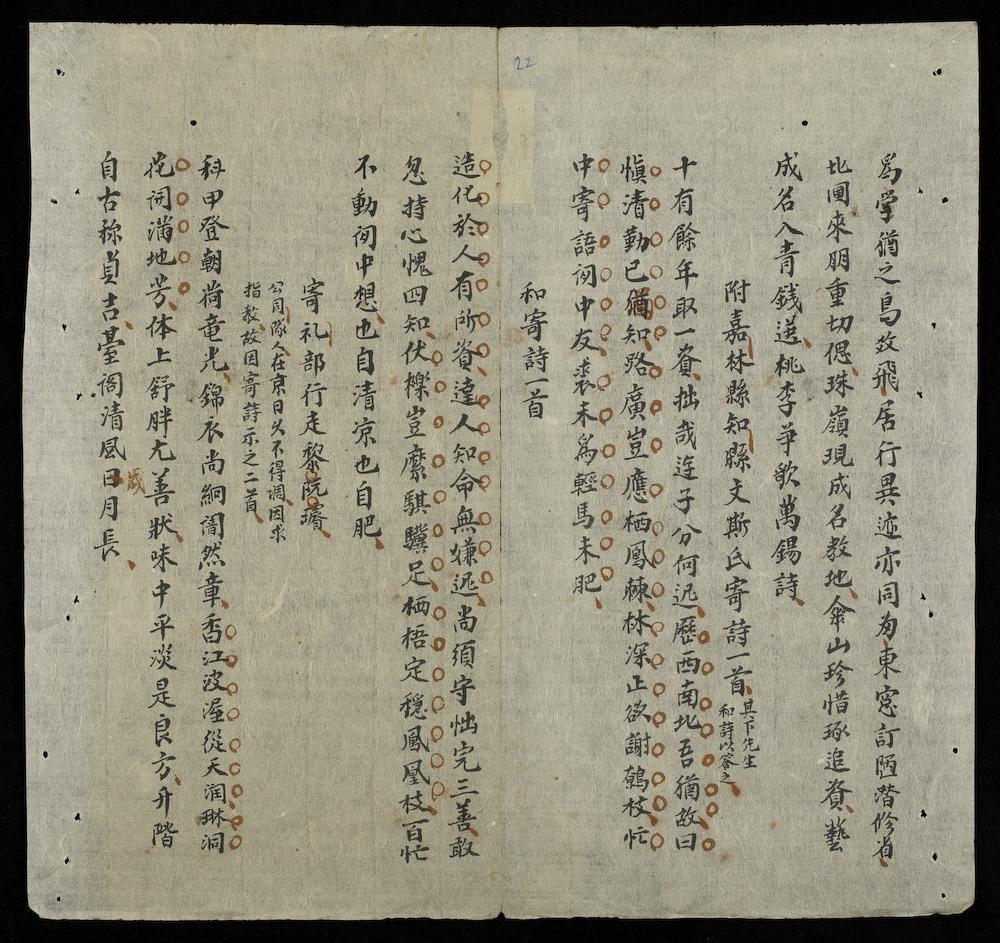 22
為學猶之鳥效飛居行異迹亦同匆東窓訂陋潛修省
北圃來朋重切偲珠嶺現成名教地傘山珍惜琢追資藝
成名入青錢選桃李爭歌萬錫詩
附嘉林縣知縣文斯氏寄詩一首其下先生和詩以答之
十有餘年取一資拙哉迕子分何迟歷西南北吾猶故曰
愼清勤已猶知路廣豈應栖鳳棘林深止欲謝鷦枝忙
中寄語詞中友裘未為輕馬未肥
和寄詩一首
造化於人有所資達人知命無嫌迟尚須守怉完三善敢
忽持心愧四知伏櫪豈縻騏驥足栖梧定穏鳳凰枝百忙
不動詞中想也自清凉也自肥
寄礼部行走黎阮璿
公同隊人在京日久不得調因求
指教故因寄詩示之二首
科甲登朝荷竜光錦衣尚絅闇然章香江波渥從天润琳洞
花開滿地芳体上舒胖尤善狀味中平淡是良方升階
自古称貞吉臺阁清風日月長
歲